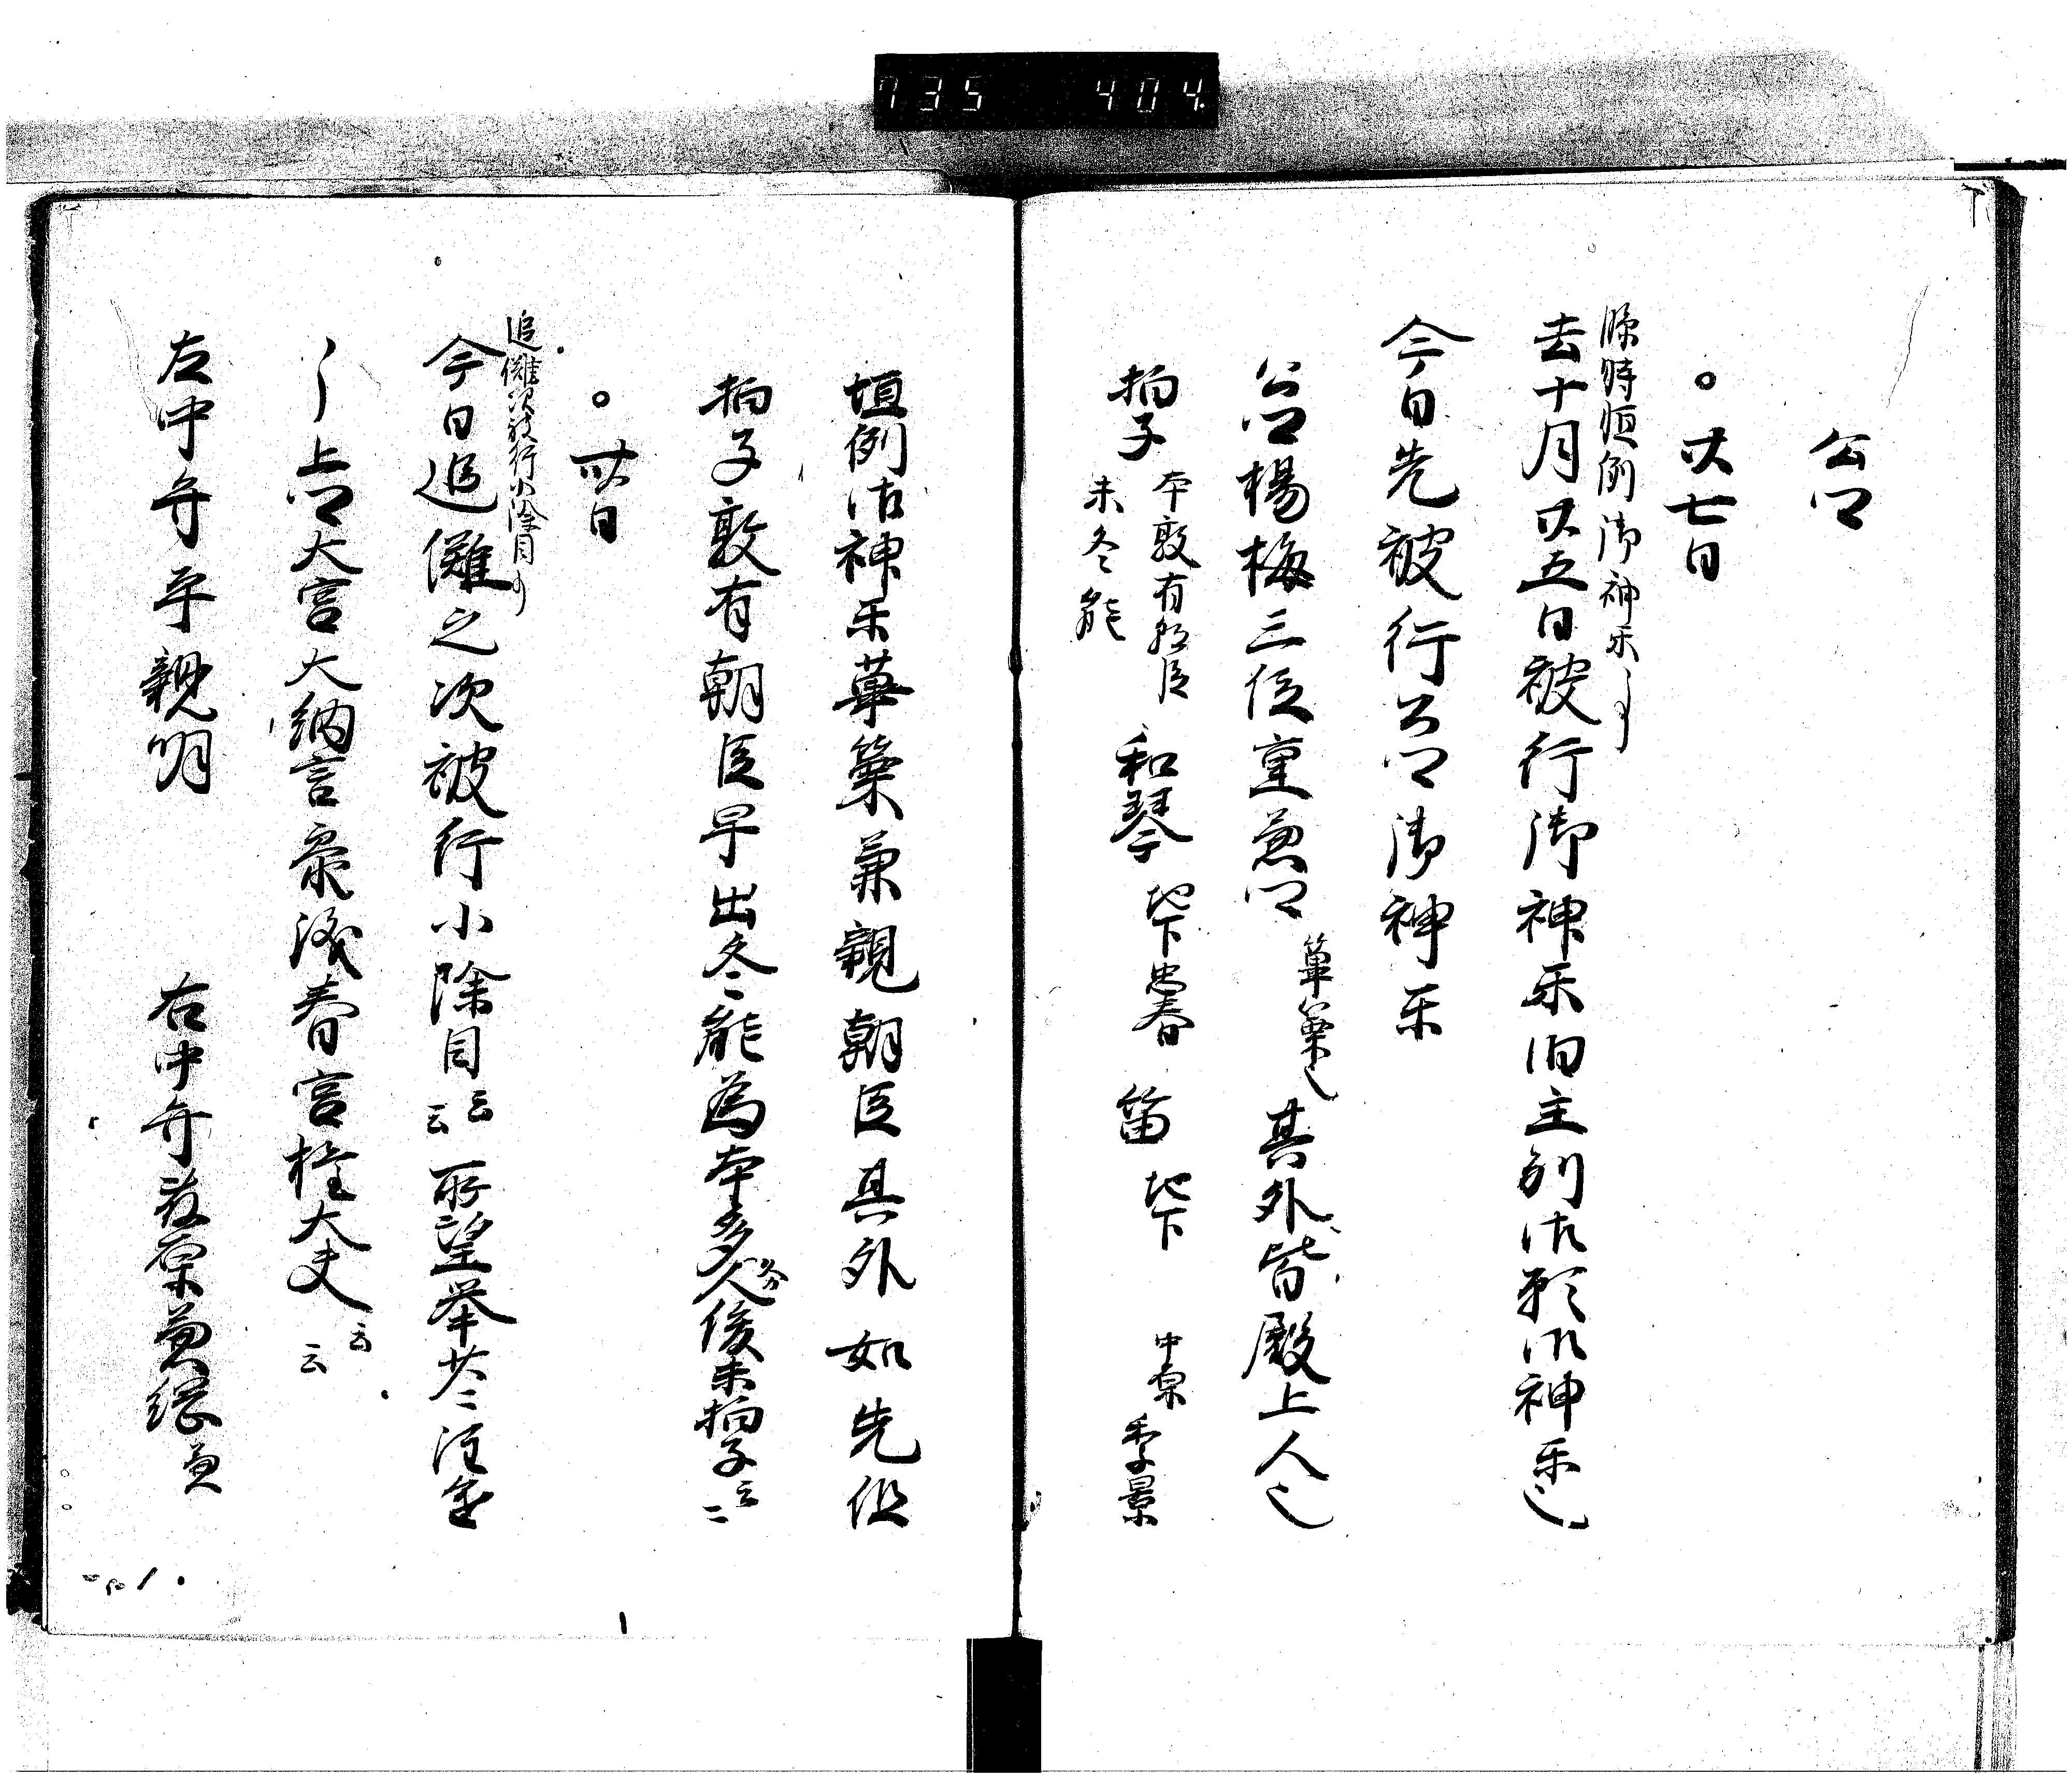 735 404
公卿
。廿七日
臨時恒例御神楽事
去十月廿五日被行御神楽旧主別御願御神楽也
今日先被行公卿御神楽
公卿楊梅三位重兼卿 篳篥也 其外皆殿上人也
拍子 本敦有朝臣 末冬能 和琴 地下忠春 笛 地下 中原季景
恒例御神楽篳篥兼親朝臣其外如先但
拍子敦有朝臣早出冬能為本多久俊末拍子云々
。卅日
追儺次被行小除目事
今日追儺之次被行小除目云云 所望挙共注金
上卿大宮大納言参議春宮権大夫云云
左中弁平親明 右中弁藤原兼綱兼